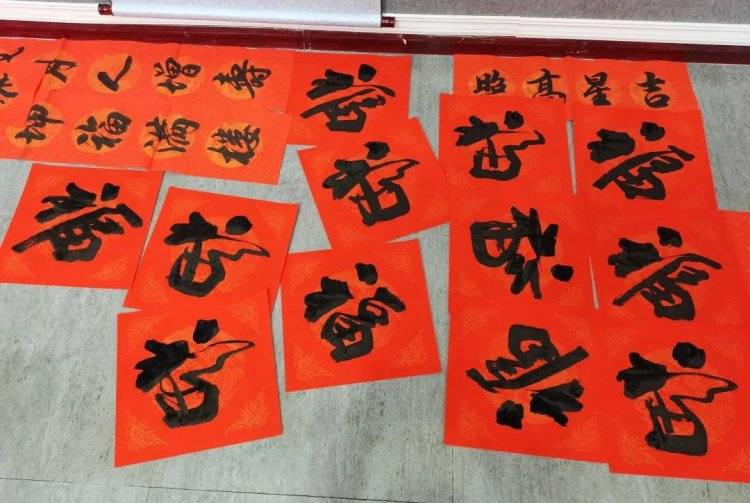 月人增壽
坤福滿樓
吉星高照
福
福
福
福
福
福
福
福
福
福